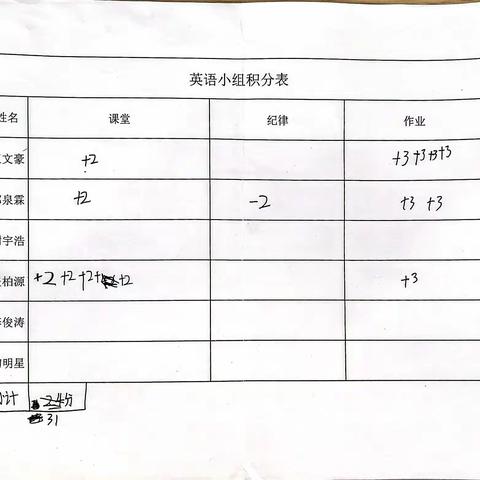 英语小组积分表
姓名 课堂 纪律 作业
文豪 +2 +3 +3 +3 +3
泉霖 +2 -2 +3 +3
宇浩
柏源 +2 +2 +2 +2 +3
俊涛
明星
计 24分
31